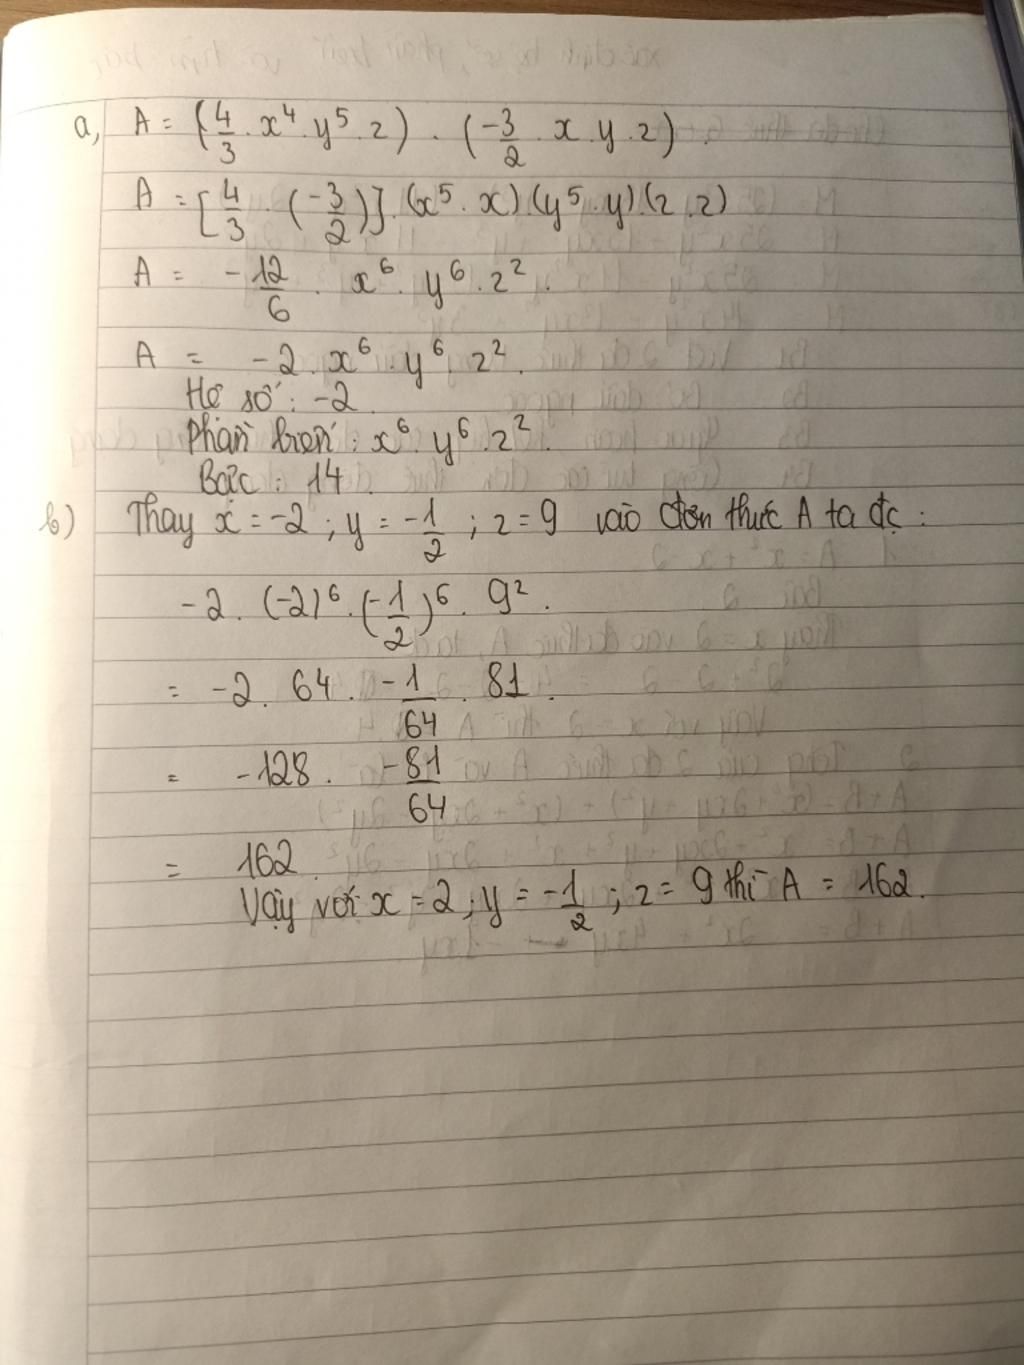 a, A = (4/3 . x⁴ . y⁵ . z) . (-3/2 . x . y . z) .
A = [4/3 . (-3/2)] . (x⁵ . x) (y⁵ . y) (z . z)
A = -12/6 . x⁶ . y⁶ . z² .
A = -2 . x⁶ . y⁶ . z² .
Hệ số : -2
Phần biến : x⁶ . y⁶ . z² .
Bậc : 14
b) Thay x = -2 ; y = -1/2 ; z = 9 vào đơn thức A ta đc :
-2 . (-2)⁶ . (-1/2)⁶ . 9² .
= -2 . 64 . -1/64 . 81 .
= -128 . -81/64
= 162 .
Vậy với x = 2 ; y = -1/2 ; z = 9 thì A = 162 .